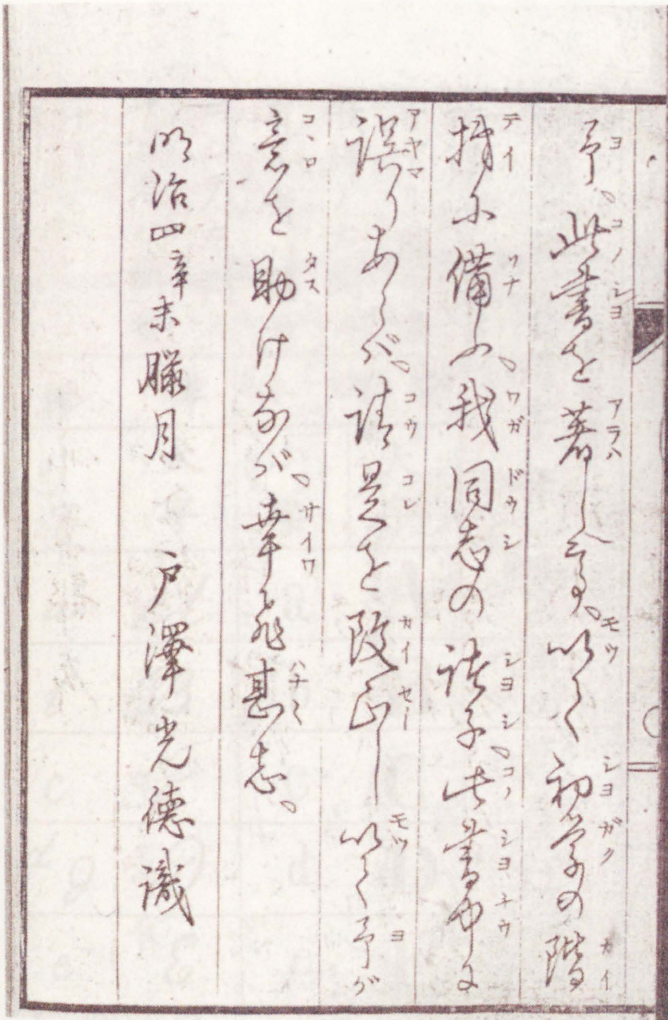 予、此書を著し〻、以て初学の階
梯に備ふ、我同志の諸子、此書中に
誤りあらバ、請是を改正し以て予が
意を助けなバ、幸甚志。
明治四辛未臘月　戸澤光德識